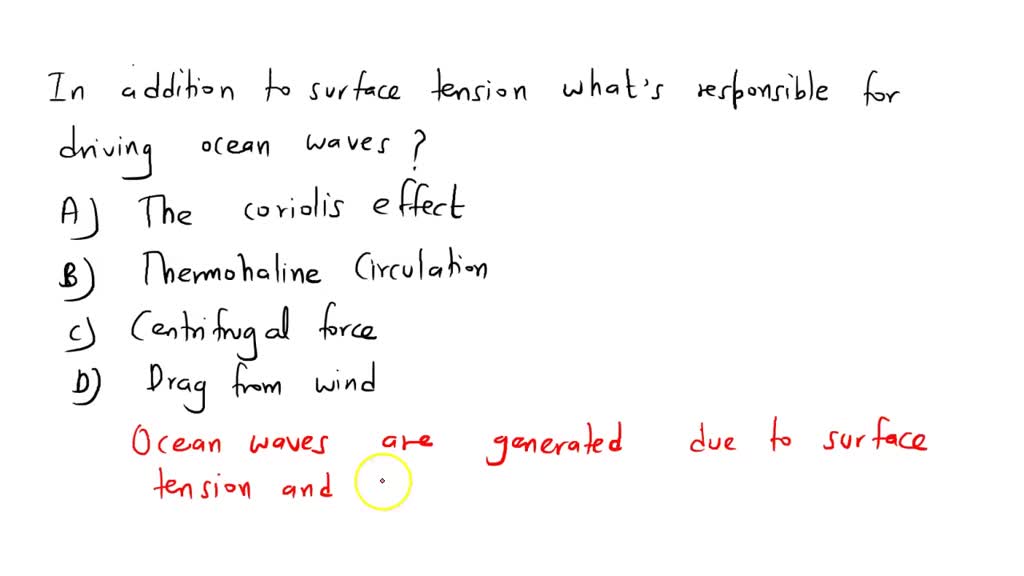 In addition to surface tension what's responsible for
driving ocean waves ?
A) The coriolis effect
B) Thermohaline Circulation
C) Centrifugal force
D) Drag from wind
Ocean waves are generated due to surface
tension and